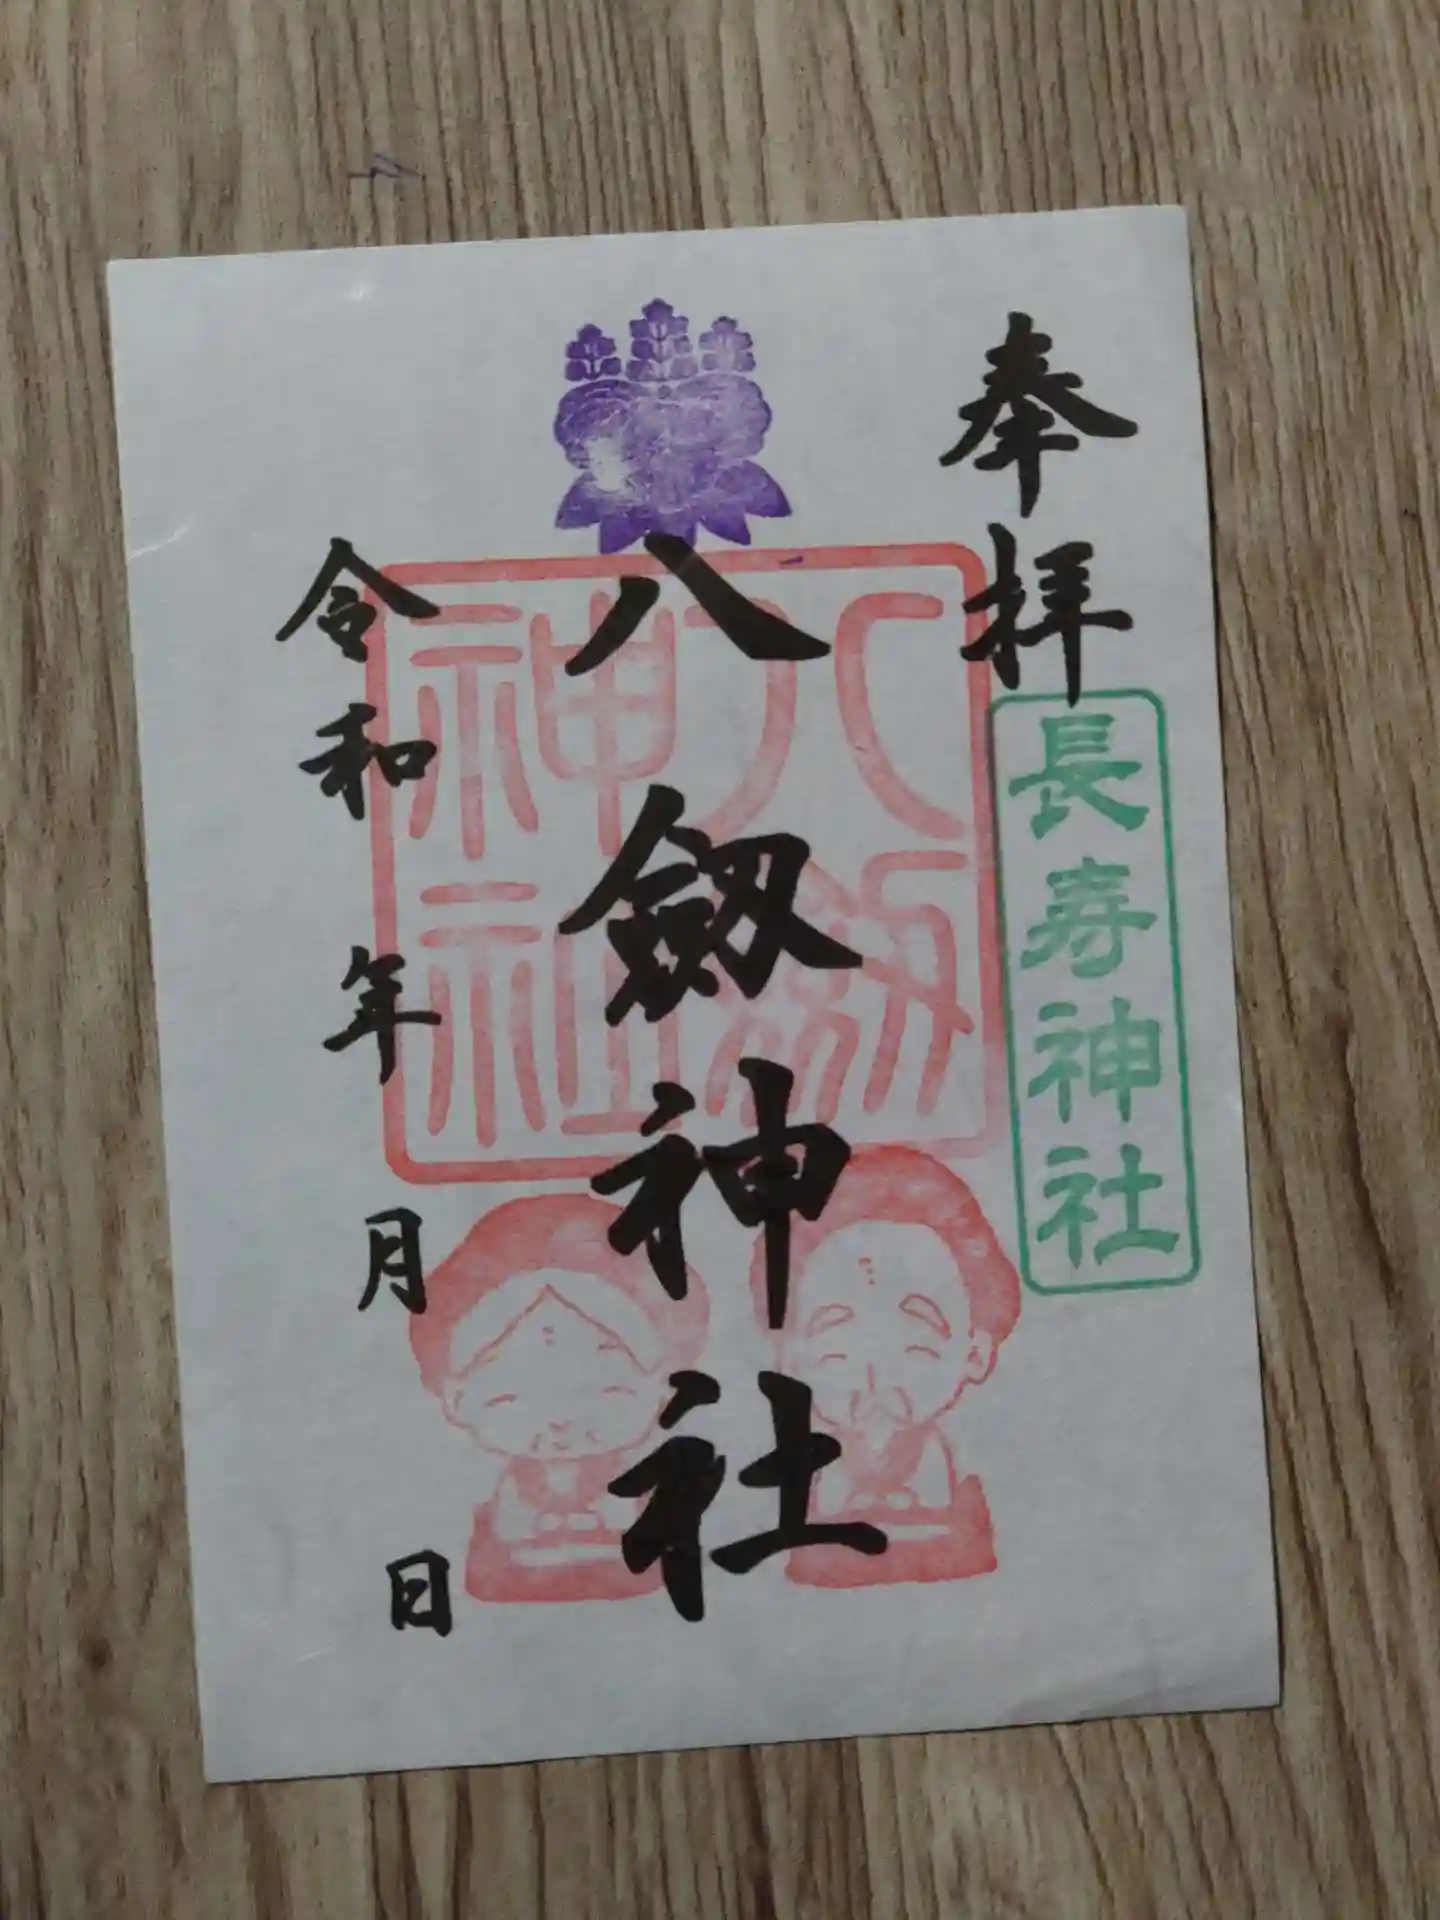 奉拝
長寿神社
八劔神社
八剱神社
令和 年 月 日